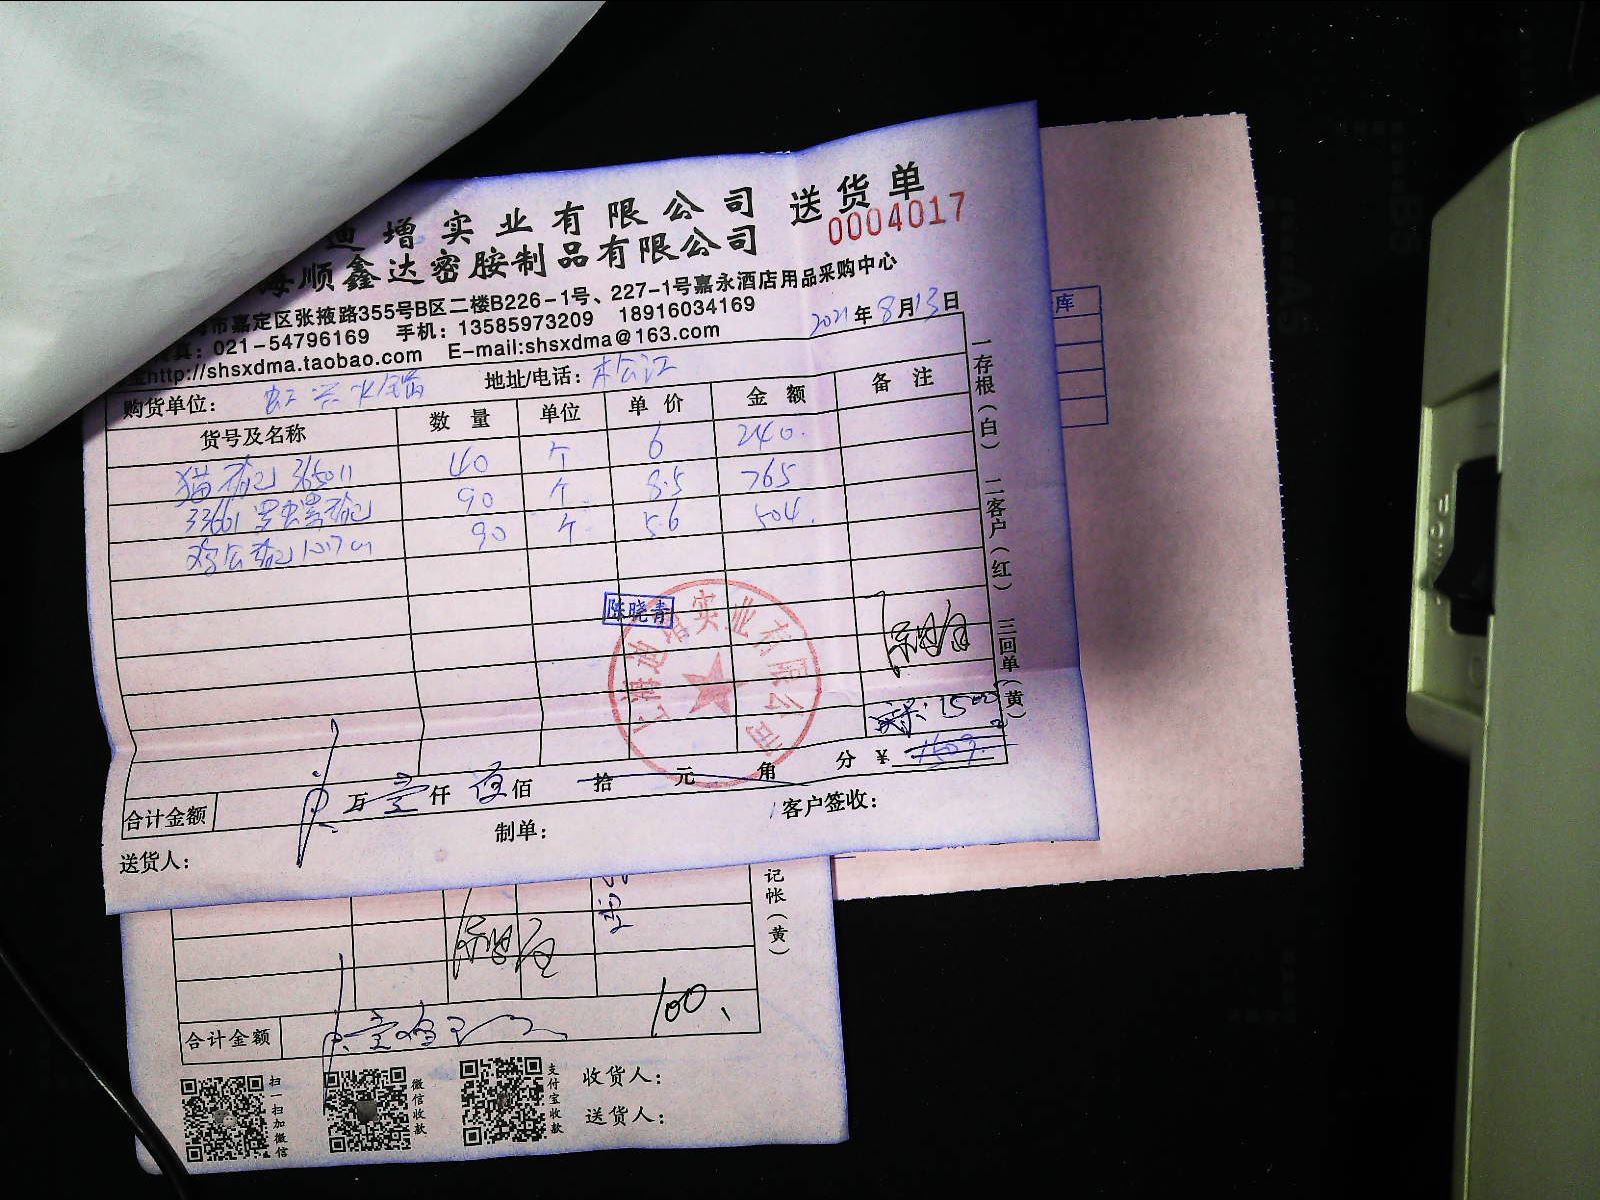 迪增实业有限公司 送货单
海顺鑫达密胺制品有限公司 0004017
市嘉定区张掖路355号B区二楼B226-1号、227-1号嘉永酒店用品采购中心
真：021-54796169 手机：13585973209 18916034169
http://shsxdma.taobao.com E-mail:shsxdma@163.com
2021年8月13日
购货单位： 地址/电话：松江
货号及名称 数量 单位 单价 金额 备注
365011 40 个 6 240.
33661 90 个 8.5 765
90 个 5.6 504.
陈晓青
实业有限公司
实：1500
合计金额 万壹仟伍佰 拾 元 角 分 ¥ 1509.
送货人： 制单： 客户签收：
一存根（白） 二客户（红） 三回单（黄）
库
记帐（黄）
合计金额 100、
扫一扫加微信
微信收款
支付宝收款
收货人：
送货人：